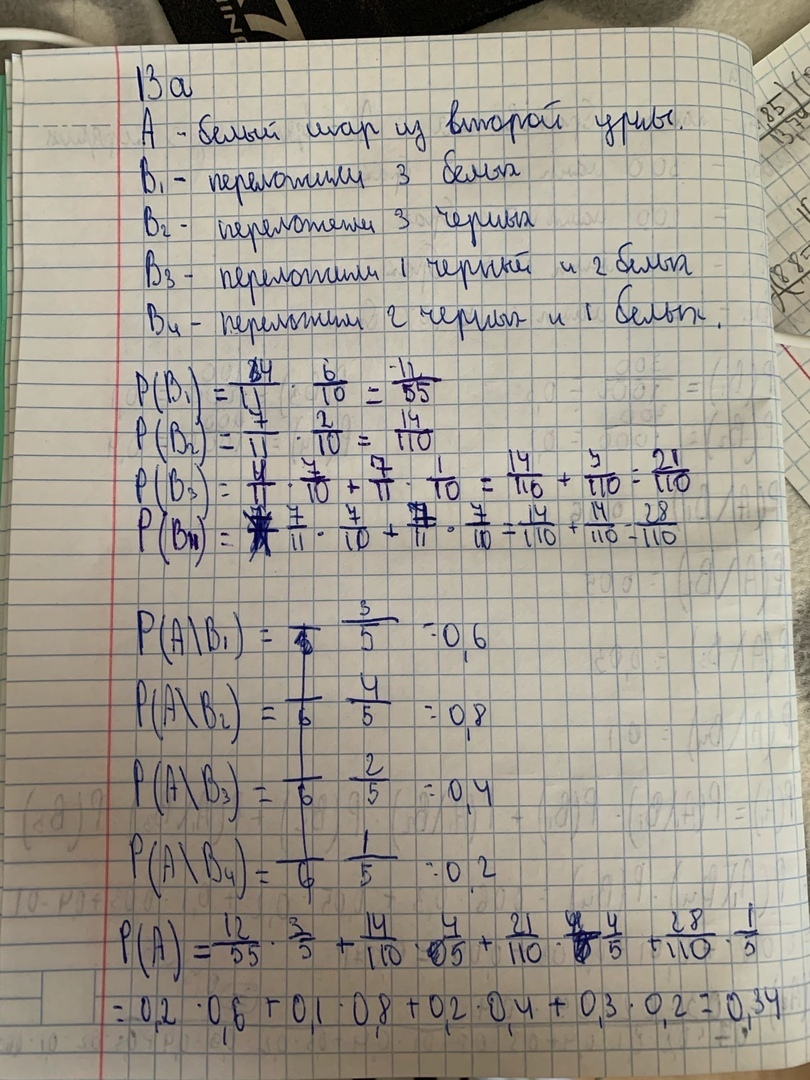 13а
А - белый шар из второй урны.
В₁ - переложили 3 белых
В₂ - переложили 3 черных
В₃ - переложили 1 черный и 2 белых
В₄ - переложили 2 черных и 1 белых.
P(B₁) = 4/11 · 6/10 = 12/55
P(B₂) = 7/11 · 2/10 = 14/110
P(B₃) = 4/11 · 7/10 + 7/11 · 1/10 = 14/110 + 7/110 = 21/110
P(B₄) = 7/11 · 7/10 + 7/11 · 7/10 = 14/110 + 14/110 = 28/110
P(A\B₁) = 3/5 = 0,6
P(A\B₂) = 4/5 = 0,8
P(A\B₃) = 2/5 = 0,4
P(A\B₄) = 1/5 = 0,2
P(A) = 12/55 · 3/5 + 14/110 · 4/5 + 21/110 · 4/5 + 28/110 · 1/5
= 0,2 · 0,6 + 0,1 · 0,8 + 0,2 · 0,4 + 0,3 · 0,2 = 0,34